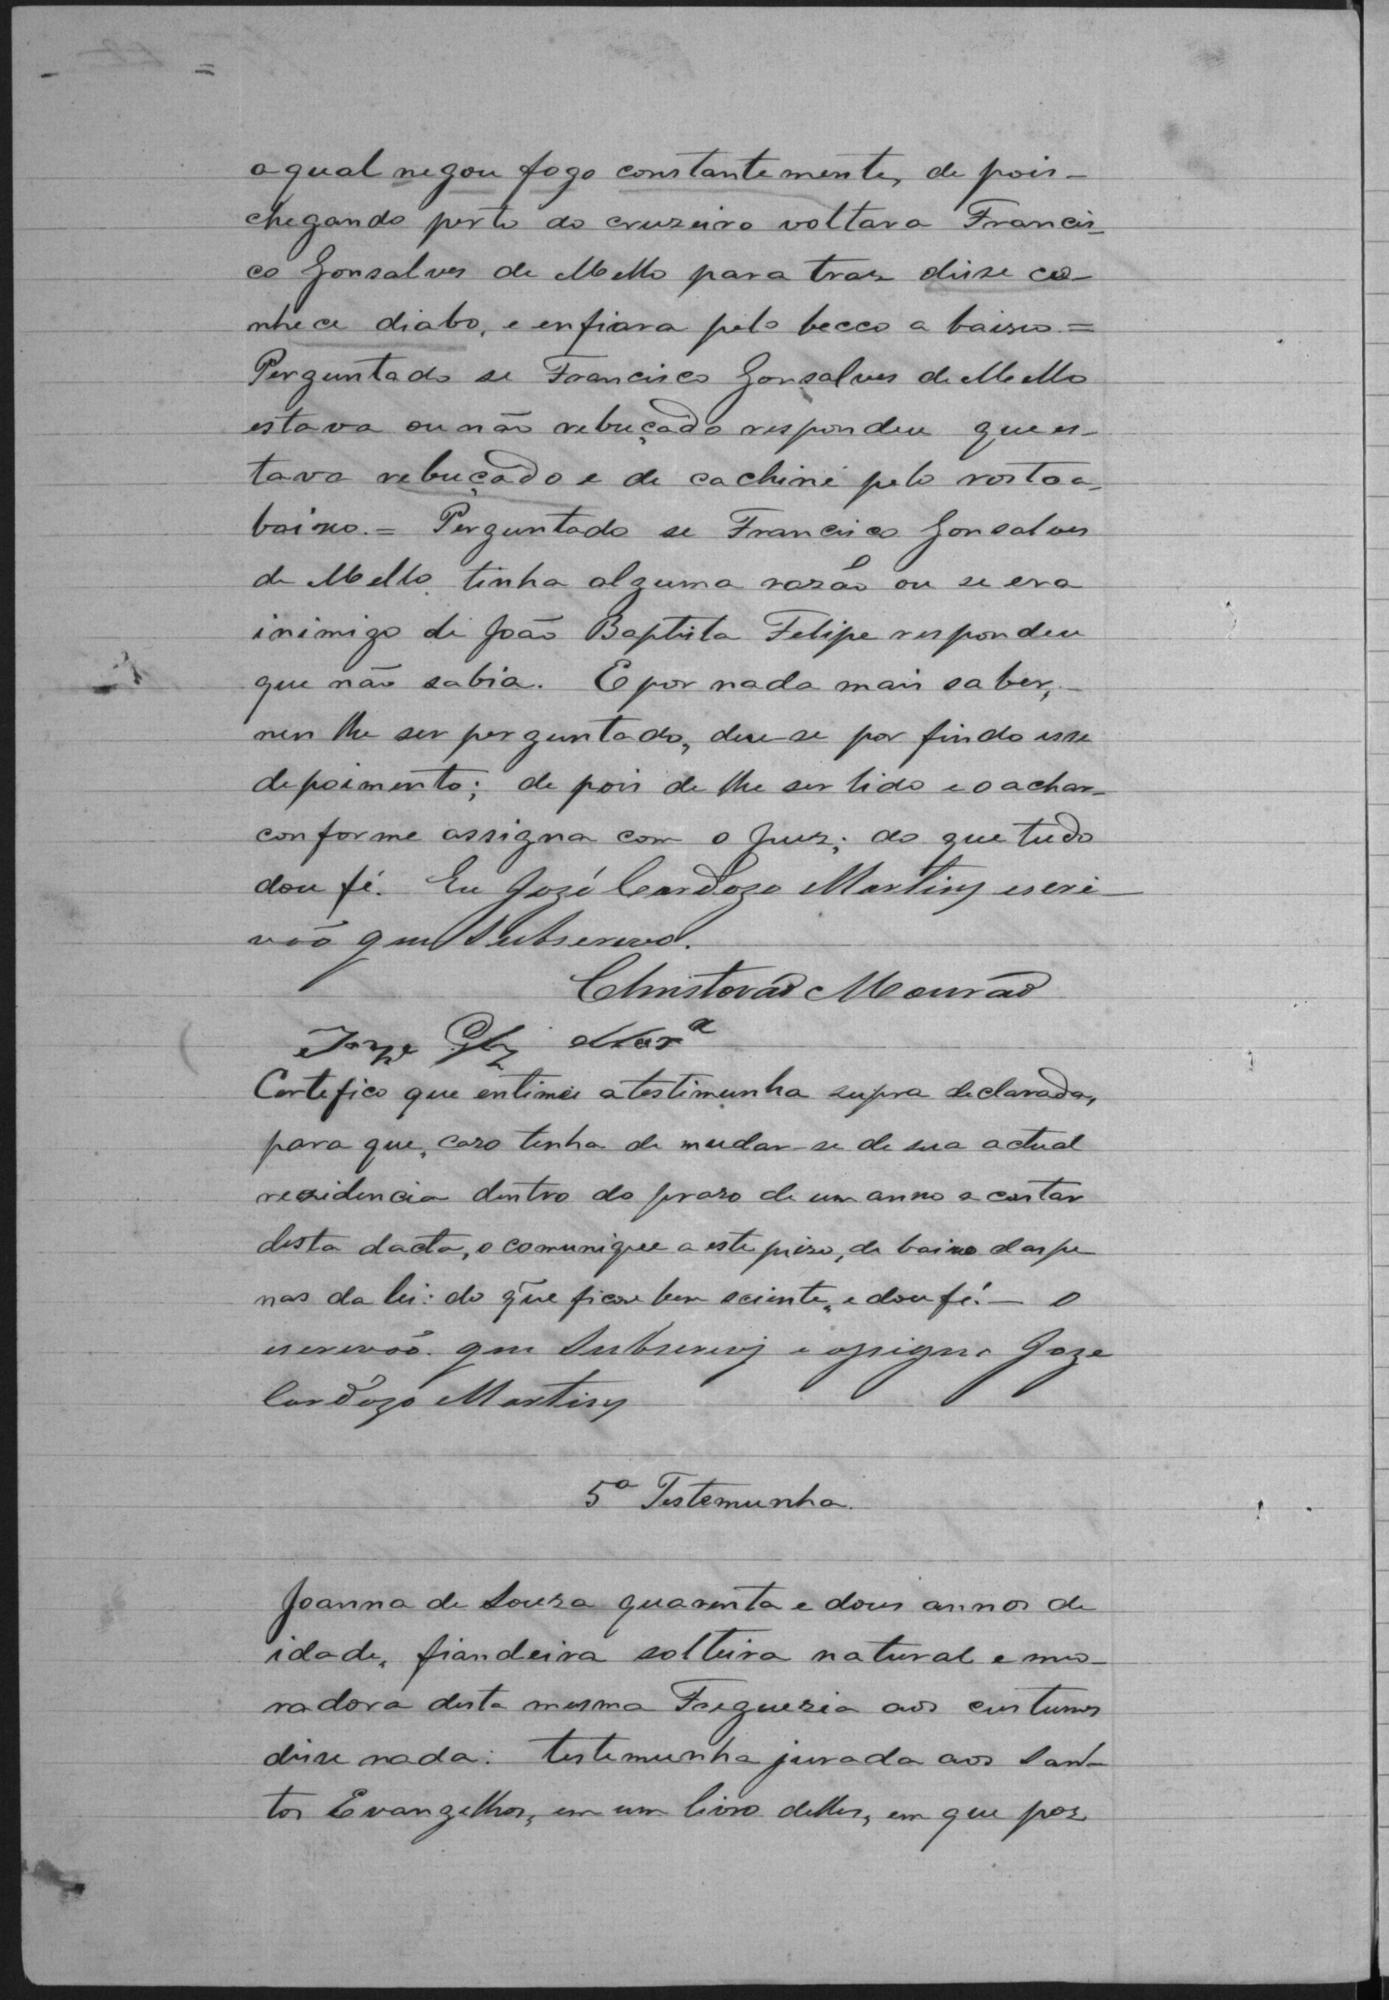 a qual negou fogo constantemente, de pois-
chegando perto do cruzeiro voltara Francis-
co Gonsalves de Mello para traz disse co-
nhece diabo, e enfiara pelo becco a baixo =
Perguntado se Francisco Gonsalves de Mello
estava ou não rebuçado respondeu que es-
tava rebuçado e de cachiné pelo rosto a-
baixo. = Perguntado se Francisco Gonsalves
de Mello tinha alguma razão ou se era
inimigo de João Baptista Felipe respondeu
que não sabia. E por nada mais saber,-
nen lhe ser perguntado, deu-se por findo esse
depoimento; de pois de lhe ser lido e o achar-
conforme assigna com o Juiz; do que tudo
dou fé. Eu Jozé Cardozo Martins escri-
vão que Subscrevo.
Christovão Mourão
Certefico que entimei a testimunha supra declarada,
para que, caso tenha de mudar-se de sua actual
rezidencia dentro do praso de um anno a contar
desta dacta, o comunique a este juizo, de baixo das pe
nas da lei: do que ficou bem sciente, e dou fé. — O
escrevão que Subscrevj e assigno Joze
Cardozo Martins
5ª Testemunha.
Joanna de Souza quarenta e dous annos de
idade, fiandeira solteira natural e mo-
radora desta mesma Freguezia aos custumes
disse nada: testemunha jurada aos San-
tos Evangelhos, em um livro delles, em que poz